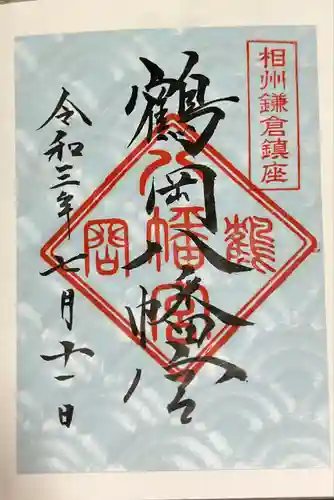 相州鎌倉鎮座
鶴岡八幡宮
鶴岡八幡宮
令和三年七月十一日